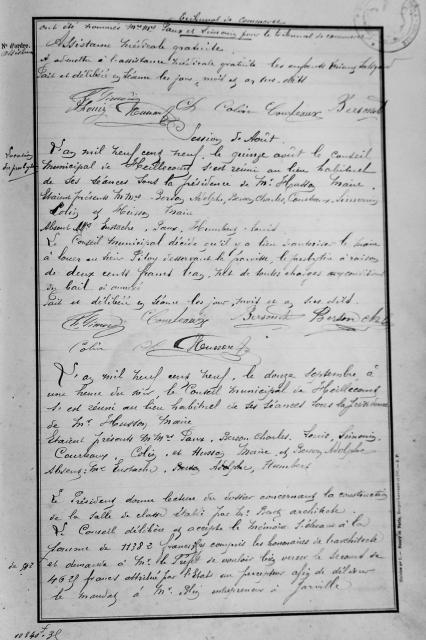 Tribunal de commerce
ont été nommés M. Mrs Paux et Simonin pour le tribunal de commerce
N° d'ordre
Assistance médicale gratuite
A admettre à l'assistance médicale gratuite les enfants
Fait et délibéré en séance les jour, mois et an sus dits
Simonin
Louis Husson Ch Colin Courteaux Berson
Session de Août
Location du presbytère
L'an mil neuf cent neuf, le quinze août le Conseil
municipal de Heillecourt s'est réuni au lieu habituel
de ses séances sous la présidence de Mr Husson Maire.
Etaient présents M Mrs Berson Adolphe, Berson Charles, Courteaux, Simonin,
Colin et Husson Maire
Absents Mrs Eustache, Paux, Humbert, Louis
Le Conseil municipal décide qu'il y a lieu d'autoriser le maire
à louer au sieur desservant la paroisse, le presbytère à raison
de deux cents francs l'an, net de toutes charges aux conditions
du bail ci annexé
Fait et délibéré en séance les jour, mois et an sus dits.
Simonin Courteaux Berson Berson Chs
Colin Husson
L'an mil neuf cent neuf, le douze septembre à
une heure du soir, le Conseil municipal de Heillecourt
s'est réuni au lieu habituel de ses séances sous la présidence
de Mr Husson, Maire
Etaient présents M Mrs Paux, Berson Charles, Louis, Simonin,
Courteaux, Colin, et Husson Maire, et Berson Adolphe
Absents: Mrs Eustache, Humbert
Le Président donne lecture du dossier concernant la construction
de la salle de classe établi par Mr architecte
Le Conseil délibère et accepte le mémoire s'élevant à la
somme de 11382 francs y compris les honoraires de l'architecte
et demande à Mr le Préfet de vouloir bien verser le second de
4628 francs attribué par l'Etat au percepteur afin de délivrer
le mandat à Mr entrepreneur à Jarville